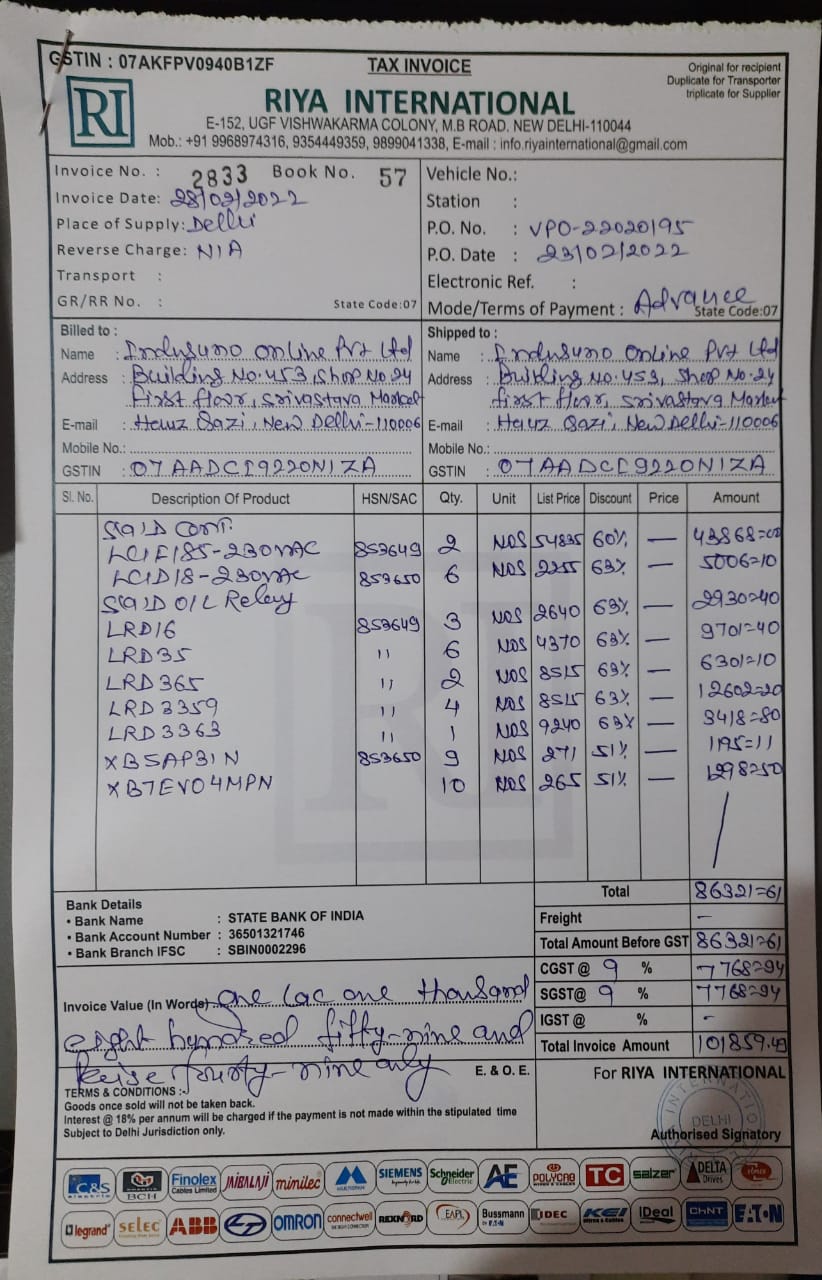 GSTIN : 07AKFPV0940B1ZF
TAX INVOICE
Original for recipient
Duplicate for Transporter
triplicate for Supplier
RI
RIYA INTERNATIONAL
E-152, UGF VISHWAKARMA COLONY, M.B ROAD. NEW DELHI-110044
Mob.: +91 9968974316, 9354449359, 9899041338, E-mail : info.riyainternational@gmail.com
Invoice No. : 2833 Book No. 57
Invoice Date: 28/02/2022
Place of Supply: Delhi
Reverse Charge: N/A
Transport :
GR/RR No. : State Code:07
Vehicle No.:
Station :
P.O. No. : VPO-22020195
P.O. Date : 23/02/2022
Electronic Ref. :
Mode/Terms of Payment : Advance
State Code:07
Billed to :
Name : Industuno Online Pvt Ltd
Address : Building No. 453, Shop No. 24
First floor, Srivastava Market
E-mail : Hauz Qazi, New Delhi-110006
Mobile No.:
GSTIN : 07AADCI9220N1ZA
Shipped to :
Name : Industuno Online Pvt Ltd
Address : Building No. 453, Shop No. 24
First floor, Srivastava Market
E-mail : Hauz Qazi, New Delhi-110006
Mobile No.:
GSTIN : 07AADCI9220N1ZA
Sl. No. Description Of Product HSN/SAC Qty. Unit List Price Discount Price Amount
LC1F185-230VAC 853649 2 NOS 54835 60% — 43868=00
LC1D18-230VAC 853650 6 NOS 2255 63% — 5006=10
O/L Relay
LRD16 853649 3 NOS 2640 63% — 2930=40
LRD35 " 6 NOS 4370 63% — 9701=40
LRD365 " 2 NOS 8515 63% — 6301=10
LRD3359 " 4 NOS 8515 63% — 12602=20
LRD3363 " 1 NOS 9240 63% — 3418=80
XB5AP31N 853650 9 NOS 271 51% — 1195=11
XB7EV04MPN 10 NOS 265 51% — 1298=50
Total 86321=61
Freight –
Total Amount Before GST 86321=61
CGST @ 9 % 7768=94
SGST@ 9 % 7768=94
IGST @ % -
Total Invoice Amount 101859.49
Bank Details
• Bank Name : STATE BANK OF INDIA
• Bank Account Number : 36501321746
• Bank Branch IFSC : SBIN0002296
Invoice Value (In Words) One lac one thousand
eight hundred fifty-nine and
Paise fourty-nine only
E. & O. E.
TERMS & CONDITIONS :-
Goods once sold will not be taken back.
Interest @ 18% per annum will be charged if the payment is not made within the stipulated time
Subject to Delhi Jurisdiction only.
For RIYA INTERNATIONAL
DELHI
Authorised Signatory
C&S BCH Finolex Cables Limited JAIBALAJI minilec SIEMENS Schneider Electric AE POLYCAB TC salzer DELTA Drives
legrand selec ABB OMRON connectwell REXNORD EAPL Bussmann by EATON IDEC KEI Wires & Cables iDeal CHNT EATON